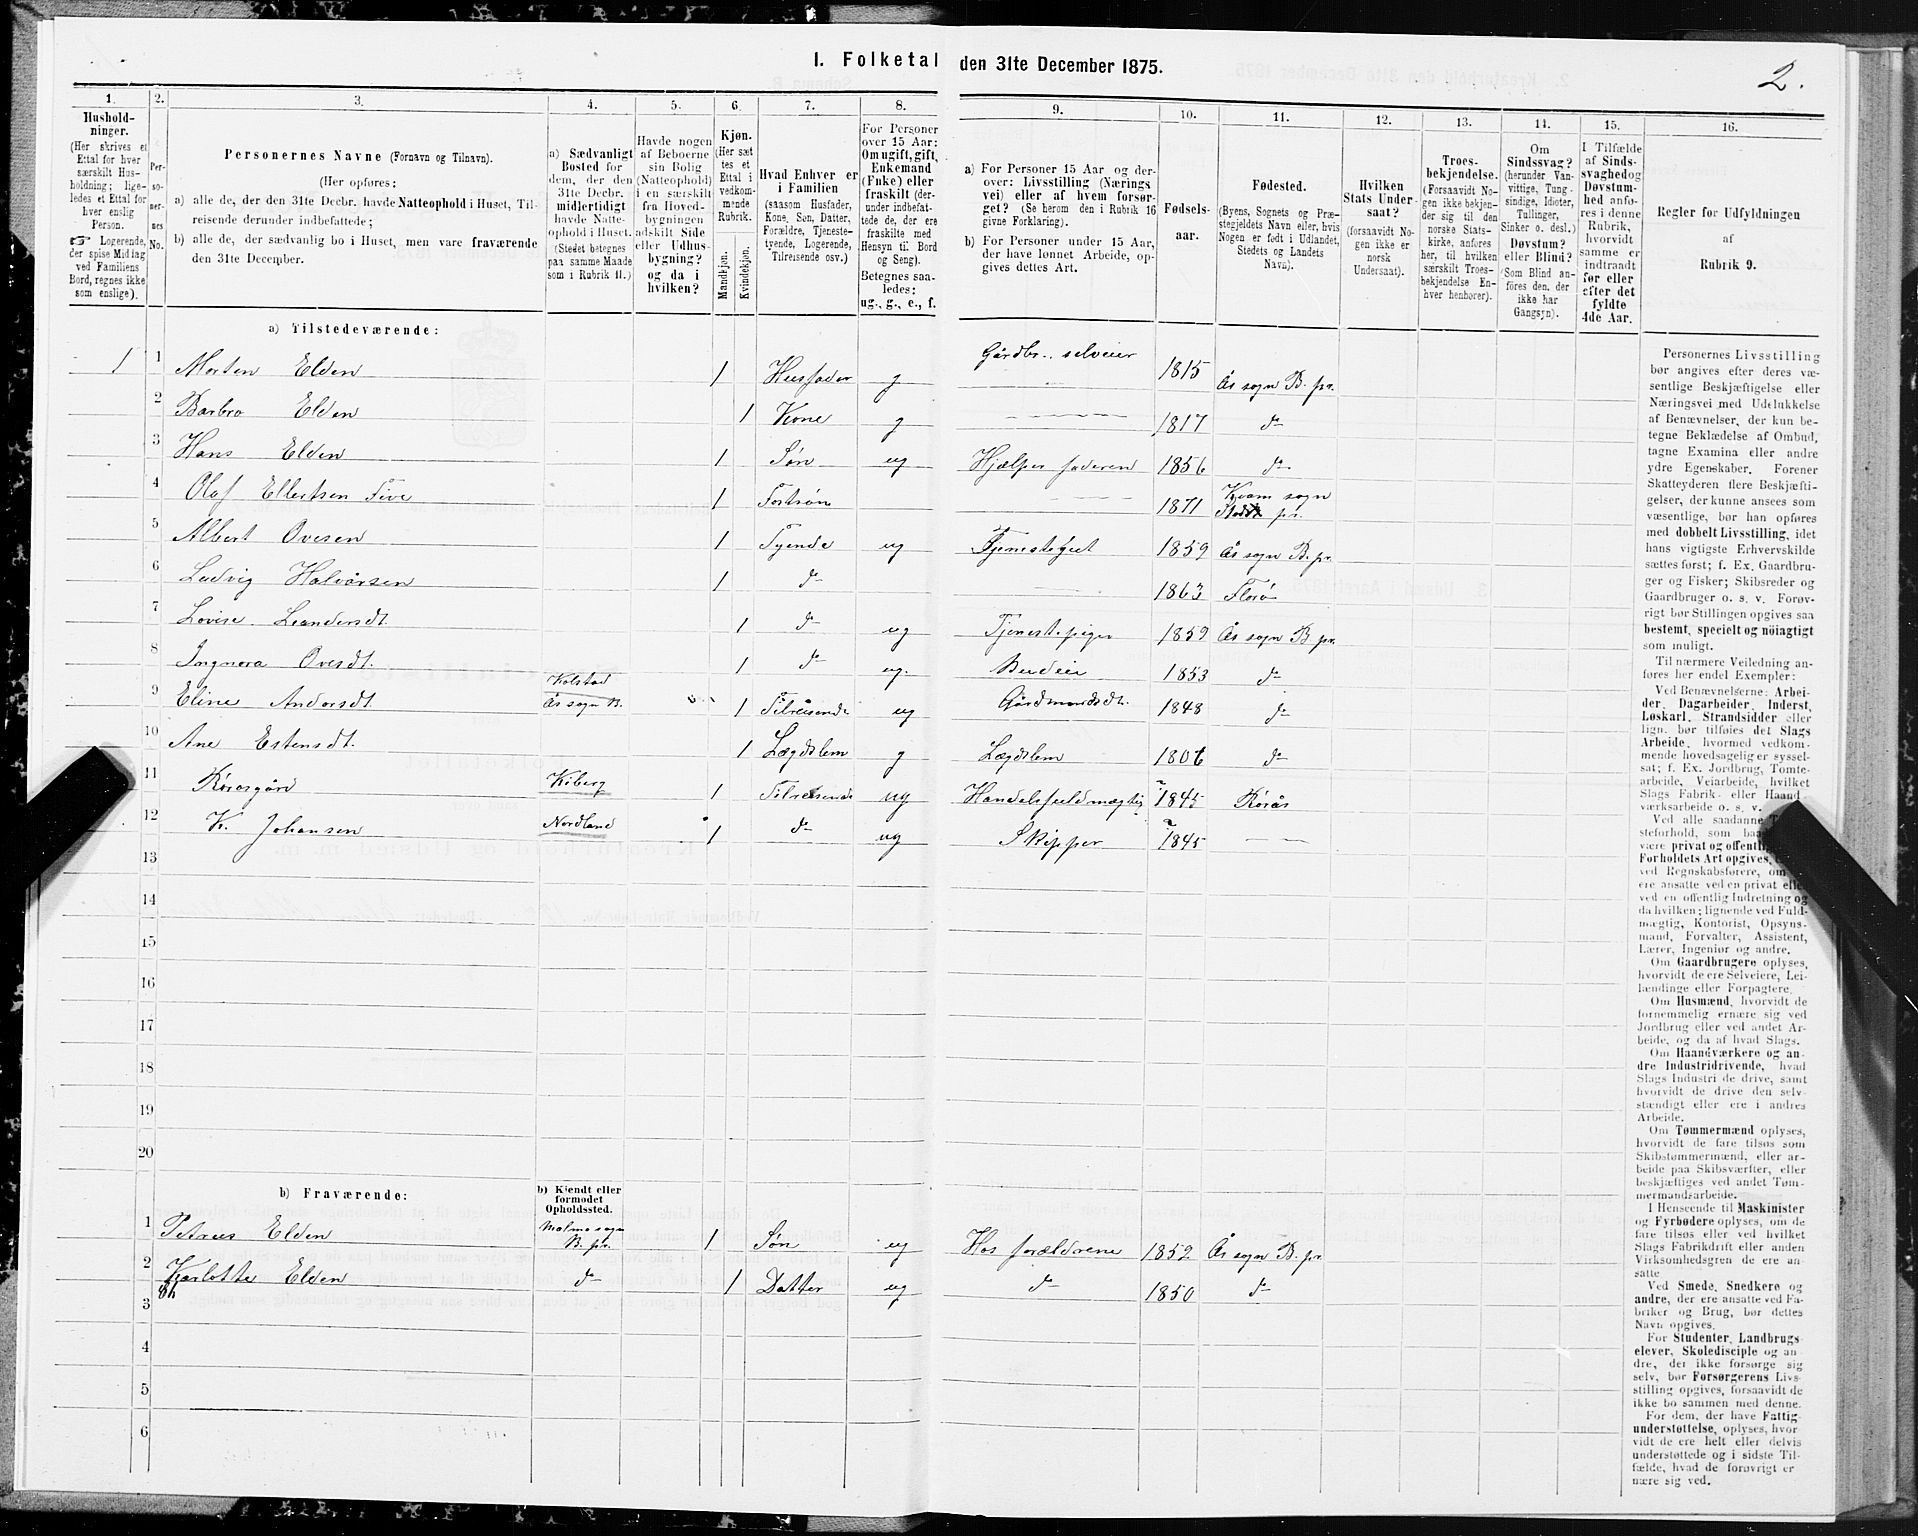 I. Folketal den 31te December 1875.
2.
1. 2. 3. 4. 5. 6. 7. 8. 9. 10. 11. 12. 13. 14. 15. 16.
Hushold-
ninger.
(Her skrives et
Ettal for hver
særskilt Hus-
holdning; lige-
ledes et Ettal for
hver enslig
Person.
☞ Logerende,
der spise Middag
ved Familiens
Bord, regnes ikke
som enslige).
Per-
so-
ner-
nes
No.
Personernes Navne (Fornavn og Tilnavn).
(Her opføres:
a) alle de, der den 31te Decbr. havde Natteophold i Huset, Til-
reisende derunder indbefattede;
b) alle de, der sædvanlig bo i Huset, men vare fraværende
den 31te December.
a) Sædvanligt
Bosted for
dem, der den
31te Decbr.
midlertidigt
havde Natte-
ophold i Huset.
(Stedet betegnes
paa samme Maade
som i Rubrik 11.)
Havde nogen
af Beboerne
sin Bolig
(Natteophold)
i en særskilt
fra Hoved-
bygningen
adskilt Side
eller Udhus-
bygning?
og da i
hvilken?
Kjøn.
(Her sæt
tes et
Ettal i
vedkom-
mende
Rubrik.
Mandkjøn.
Kvindekjøn.
Hvad Enhver er
i Familien
(saasom Husfader,
Kone, Søn, Datter,
Forældre, Tjeneste-
tyende, Logerende,
Tilreisende osv.)
For Personer
over 15 Aar:
Om ugift, gift,
Enkemand
(Enke) eller
fraskilt (der-
under indbefat-
tede de, der ere
fraskilte med
Hensyn til Bord
og Seng).
Betegnes saa-
ledes:
ug., g., e., f.
a) For Personer 15 Aar og der-
over: Livsstilling (Nærings
vei) eller af hvem forsør-
get? (Se herom den i Rubrik 16
givne Forklaring).
b) For Personer under 15 Aar,
der have lønnet Arbeide, op-
gives dettes Art.
Fødsels-
aar.
Fødested.
(Byens, Sognets og Præ-
stegjeldets Navn eller, hvis
Nogen er født i Udlandet,
Stedets og Landets
Navn).
Hvilken
Stats Under-
saat?
(forsaavidt No-
gen ikke er
norsk
Undersaat).
Troes-
bekjendelse.
(Forsaavidt No-
gen ikke bekjen-
der sig til den
norske Stats-
kirke, anføres
her, til hvilken
særskilt Troes-
bekjendelse En-
hver henhører).
Om
Sindssvag?
(herunder Van-
vittige, Tung-
sindige, Idioter,
Tullinger,
Sinker o. desl.)
Døvstum?
eller Blind?
(Som Blind an-
føres den, der
ikke har
Gangsyn).
I Tilfælde
af Sinds-
svaghed og
Døvstum-
hed anfø-
res i denne
Rubrik,
hvorvidt
samme er
indtraadt
før eller
efter det
fyldte
4de Aar.
Regler for Udfyldningen
af
Rubrik 9.
a) Tilstedeværende:
1 1 Morten Elden 1 Husfader g Gårdbr. selveier 1815 Ås sogn B. pr.
2 Barbro Elden 1 Kone g 1817 do
3 Hans Elden 1 Søn ug Hjælper faderen 1856 do
4 Olaf Ellertsen Five 1 Fostsøn 1871 Kvam sogn
Stod pr.
5 Albert Ovesen 1 Tyende ug Tjenestegut 1859 Ås sogn B. pr.
6 Ludvig Halvorsen 1 do 1863 Florø
7 Lovise Leandersdt. 1 do ug Tjenestepige 1859 Ås sogn B pr.
8 Ingnora Ovesdt. 1 do ug. Budeie 1853 do
9 Eline Andersdt. Kolstad
Ås sogn B. 1 Tilreisende ug Gårdmandsdt. 1848 do
10 Ane Estensdt. 1 Lægdslem g Lægdslem 1806 do
11 Rørosgård Kiberg 1 Tilreisende ug Handelsfuldmægtig 1845 Rørås
12 K. Johansen Nordland 1 do ug Skipper 1845
13
14
15
16
17
18
19
20
b) Fraværende:
b) Kjendt eller
formodet
Opholdssted.
1 Petrus Elden Malmo sogn
B. pr. 1 Søn ug Hos forældrene 1852 Ås sogn B. pr
2 Karlotte Elden do 1 Datter ug do 1850 do
3
4
5
6
Personernes Livsstilling
bør angives efter deres væ-
sentlige Beskjæftigelse eller
Næringsvei med Udelukkelse
af Benævnelser, der kun be-
tegne Beklædelse af Ombud,
tagne Examina eller andre
ydre Egenskaber. Forener
Skatteyderen flere Beskjæfti-
gelser, der kunne ansees som
væsentlige, bør han opføres
med dobbelt Livsstilling, idet
hans vigtigste Erhvervskilde
sættes først; f. Ex. Gaardbru-
ger og Fisker; Skibsreder og
Gaardbruger o. s. v. Forøv-
rigt bør Stillingen opgives saa
bestemt, specielt og nöiagtigt
som muligt.
Til nærmere Veiledning an-
føres her endel Exempler:
Ved Benævnelserne: Arbei-
der, Dagarbeider, Inderst,
Løskarl, Strandsidder eller
lign. bør tilføies det Slags
Arbeide, hvormed vedkom-
mende hovedsagelig er syssel-
sat; f. Ex. Jordbrug, Tomte-
arbeide, Veiarbeide, hvilket
Slags Fabrik- eller Haand
værksarbeide o. s. v.
Ved alle saadanne
steforhold, som baade
være privat og offentlig
Forholdets Art opgives,
ved Regnskabsførere, om
ere ansatte ved en privat eller
ved en offentlig Indretning og
da hvilken; lignende ved Fuld-
mægtig, Kontorist, Opsyns-
mand, Forvalter, Assistent,
Lærer, Ingeniør og andre.
Om Gaardbrugere oplyses,
hvorvidt de ere Selveiere, Lei-
lændinge eller Forpagtere.
Om Husmænd, hvorvidt de
fornemmelig ernære sig ved
Jordbrug eller ved andet Ar-
beide, og da af hvad Slags.
Om Haandværkere og an-
dre Industridrivende, hvad
Slags Industri de drive, samt
hvorvidt de drive den selv-
stændigt eller ere i andres
Arbeide.
Om Tømmermænd oplyses,
hvorvidt de fare tilsøs som
Skibstømmermænd, eller ar-
beide paa Skibsværfter, eller
beskjæftiges ved andet Tøm-
mermandsarbeide.
I Henseende til Maskinister
og Fyrbødere oplyses, om de
fare tilsøs eller ved hvilket
Slags Fabrikdrift eller anden
Virksomhedsgren de ere an-
satte
Ved Smede, Snedkere og
andre, der ere ansatte ved Fa-
briker og Brug, bør dettes
Navn opgives.
For Studenter, Landbrugs-
elever, Skoledisciple og an
dre, der ikke forsørge sig
selv, bør Forsørgerens Livs-
stilling opgives, forsaavidt de
ikke bo sammen med denne.
For dem, der have Fattig-
understøttelse, oplyses, hvor
vidt de ere helt eller delvis
understøttede og i sidste Til-
fælde, hvad de forøvrigt er
nære sig ved.